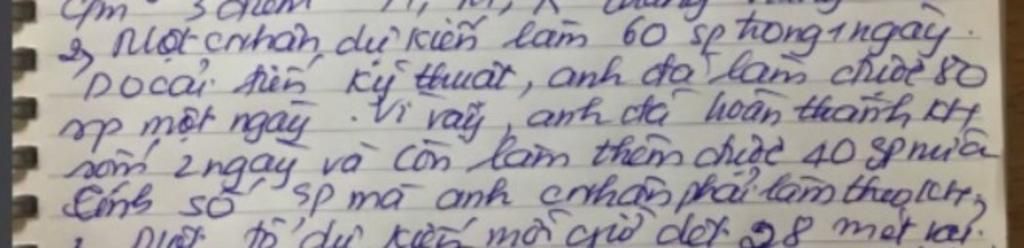 3 điểm H, M, K thẳng hàng
2, Một cnhân dự kiến làm 60 sp trong 1 ngày.
Do cải tiến kỹ thuật, anh đã làm được 80
sp một ngày. Vì vậy, anh đã hoàn thành KH
sớm 2 ngày và còn làm thêm được 40 sp nữa
Tính số SP mà anh cnhân phải làm theo KH?
Một tổ dự kiến mỗi giờ dệt 28 mét vải.